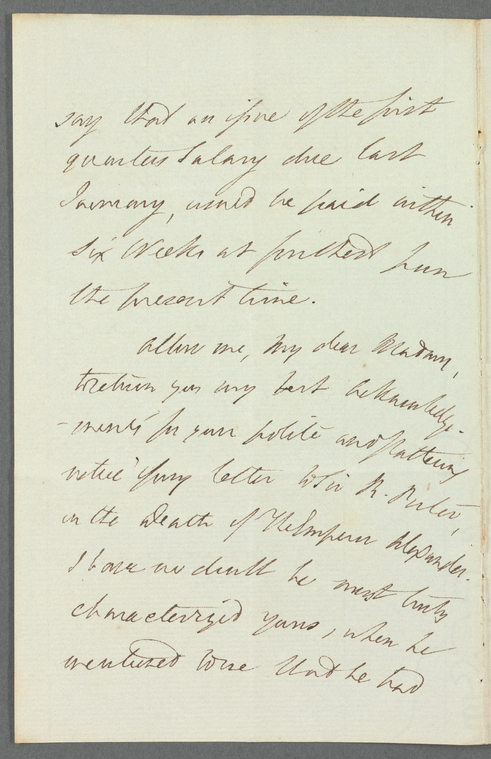 say that an issue of the first
quarters Salary due last
January, would be paid within
six Weeks at furthest from
the present time.
Allow me, My dear Madam,
to return you my best acknowledge-
-ments for your polite and flattering
notice of my letter to Sir R. Porter,
on the Death of The Emperor Alexander.
I have no doubt he most truly
characterized yours, when he
mentioned to me that he had